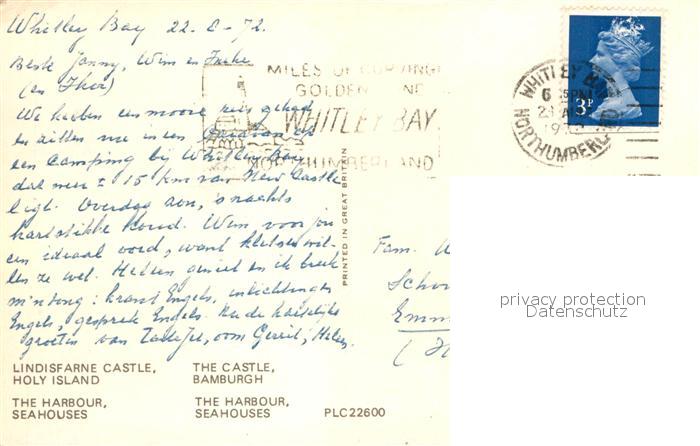 Whitley Bay 22-8-72.
Beste Janny, Wim en Ineke
(en Thor)
We hebben een mooie reis gehad
en zitten nu in een Caravan op
een Camping bij Whitley Bay
dat weer ± 15 km van New Castle
ligt. Overdag zon, 's nachts
hartstikke koud. Wim, voor jou
een ideaal oord, want kletsen wil-
len ze wel. Heleen geniet en ik breek
m'n tong: krant Engels, inlichtingen
Engels, gesprek Engels. Nu de hartelijke
groeten van oom Gerrit, Heleen
MILES OF
GOLDEN
WHITLEY BAY
NORTHUMBERLAND
WHITLEY BAY
6 PM
NORTHUMBERLAND
3P
PRINTED IN GREAT BRITAIN
Fam.
Emm
privacy protection
Datenschutz
LINDISFARNE CASTLE,
HOLY ISLAND
THE CASTLE,
BAMBURGH
THE HARBOUR,
SEAHOUSES
THE HARBOUR,
SEAHOUSES
PLC22600